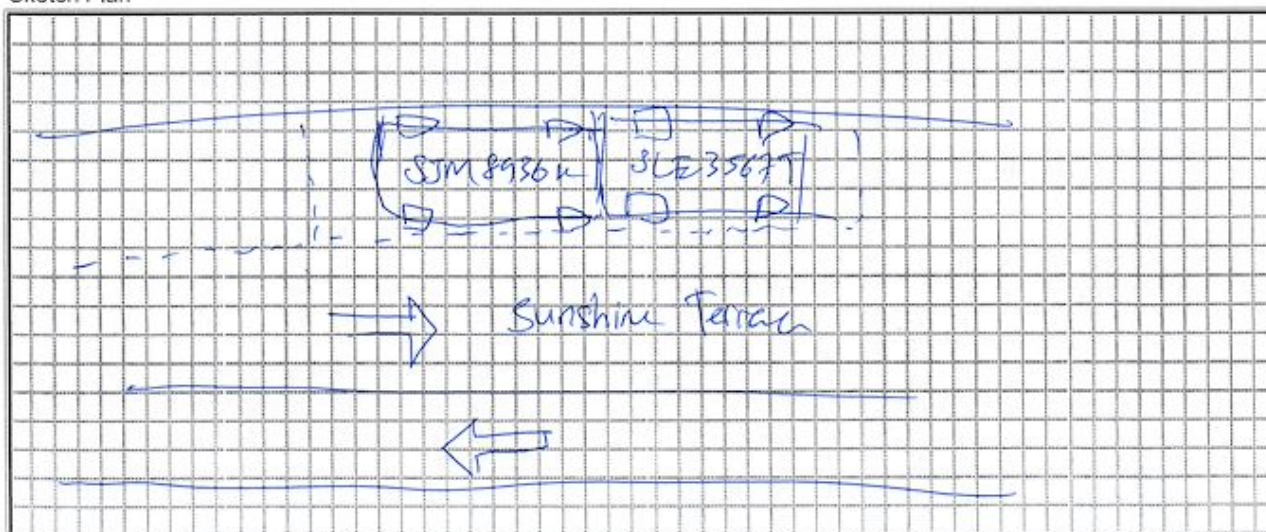 Sketch Plan
SJM8936K SLE3567T
Sunshine Terrace